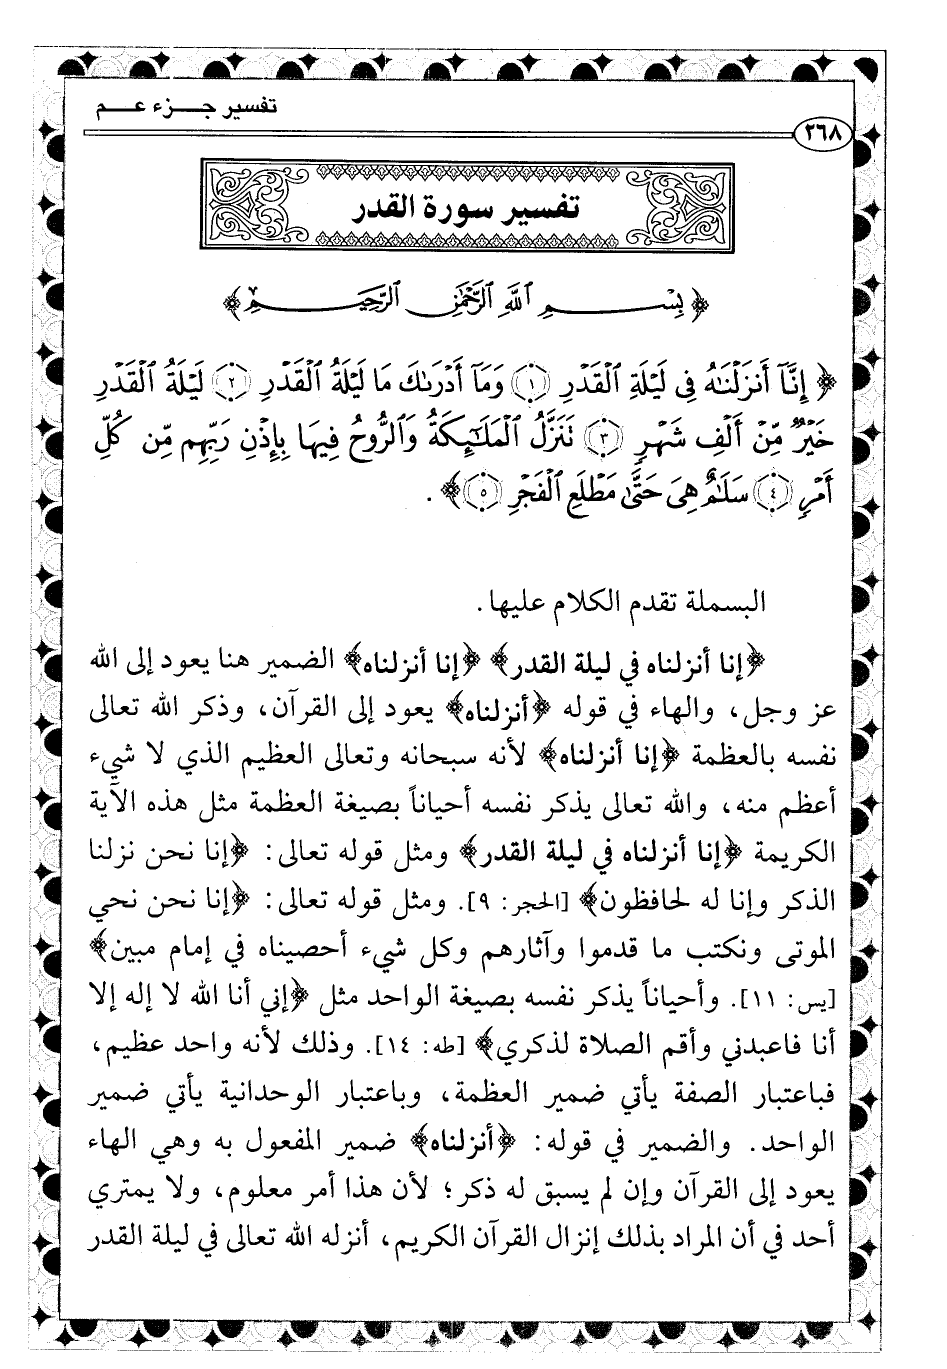 تفسير جـــزء عـــم
٢٦٨
تفسير سورة القدر
﴿بِسْمِ ٱللَّهِ ٱلرَّحْمَٰنِ ٱلرَّحِيمِ﴾
﴿ إِنَّآ أَنزَلْنَٰهُ فِى لَيْلَةِ ٱلْقَدْرِ ١ وَمَآ أَدْرَىٰكَ مَا لَيْلَةُ ٱلْقَدْرِ ٢ لَيْلَةُ ٱلْقَدْرِ
خَيْرٌ مِّنْ أَلْفِ شَهْرٍ ٣ تَنَزَّلُ ٱلْمَلَٰٓئِكَةُ وَٱلرُّوحُ فِيهَا بِإِذْنِ رَبِّهِم مِّن كُلِّ
أَمْرٍ ٤ سَلَٰمٌ هِىَ حَتَّىٰ مَطْلَعِ ٱلْفَجْرِ ٥﴾ .
البسملة تقدم الكلام عليها.
﴿إنا أنزلناه في ليلة القدر﴾ ﴿إنا أنزلناه﴾ الضمير هنا يعود إلى الله
عز وجل، والهاء في قوله ﴿أنزلناه﴾ يعود إلى القرآن، وذكر الله تعالى
نفسه بالعظمة ﴿إنا أنزلناه﴾ لأنه سبحانه وتعالى العظيم الذي لا شيء
أعظم منه، والله تعالى يذكر نفسه أحياناً بصيغة العظمة مثل هذه الآية
الكريمة ﴿إنا أنزلناه في ليلة القدر﴾ ومثل قوله تعالى: ﴿إنا نحن نزلنا
الذكر وإنا له لحافظون﴾ [الحجر: ٩]. ومثل قوله تعالى: ﴿إنا نحن نحي
الموتى ونكتب ما قدموا وآثارهم وكل شيء أحصيناه في إمام مبين﴾
[يس: ١١]. وأحياناً يذكر نفسه بصيغة الواحد مثل ﴿إني أنا الله لا إله إلا
أنا فاعبدني وأقم الصلاة لذكري﴾ [طه: ١٤]. وذلك لأنه واحد عظيم،
فباعتبار الصفة يأتي ضمير العظمة، وباعتبار الوحدانية يأتي ضمير
الواحد. والضمير في قوله: ﴿أنزلناه﴾ ضمير المفعول به وهي الهاء
يعود إلى القرآن وإن لم يسبق له ذكر؛ لأن هذا أمر معلوم، ولا يمتري
أحد في أن المراد بذلك إنزال القرآن الكريم، أنزله الله تعالى في ليلة القدر